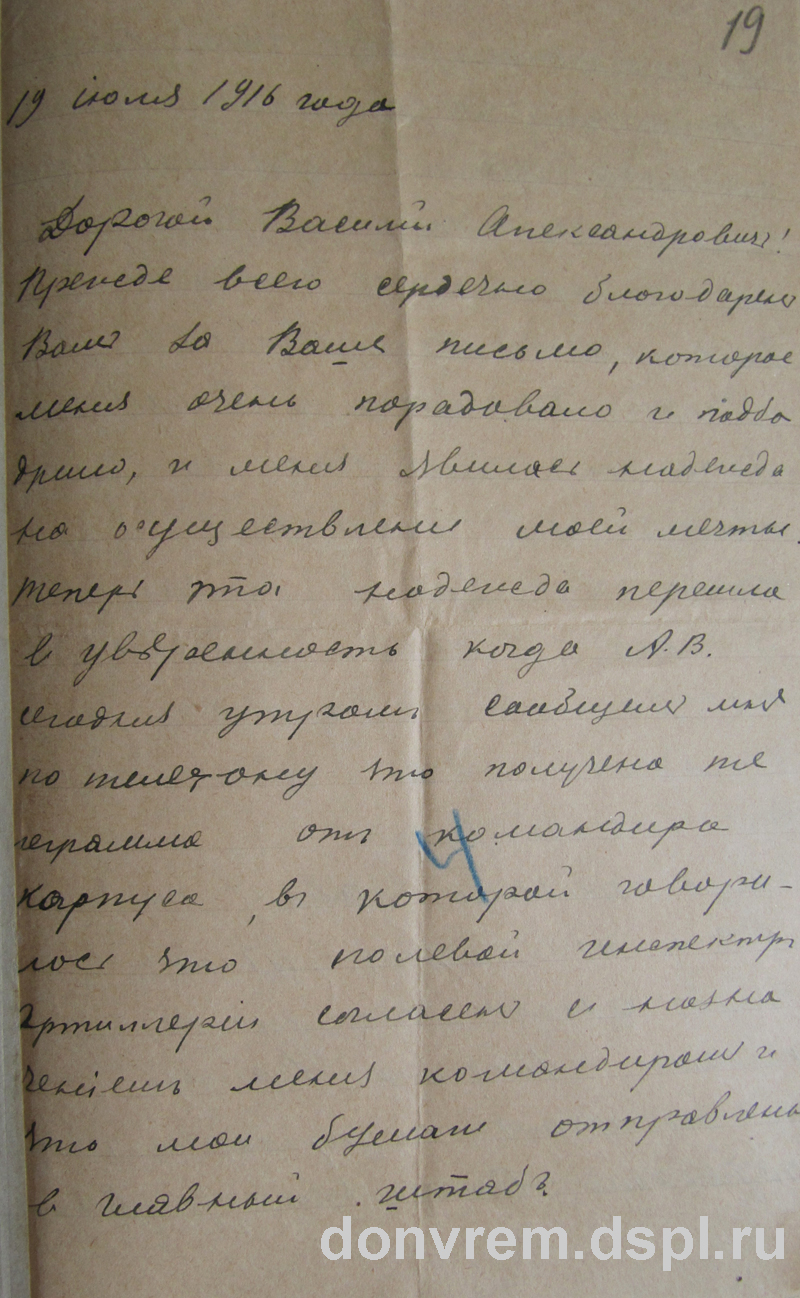 19
19 іюля 1916 года
Дорогой Василий Александровичъ!
Прежде всего сердечно благодарю
Васъ за Ваше письмо, которое
меня очень порадовало и подбо
дрило, и меня явилась надежда
на осуществление моей мечты.
теперь эта надежда перешла
в увѣренность когда А.В.
сегодня утромъ сообщилъ мнѣ
по телефону что получена те
леграмма отъ командира
корпуса, въ которой говори-
лось что полевой инспекторъ
артиллеріи согласенъ с назна
ченіемъ меня командиромъ и
что мои бумаги отправлены
в главный штабъ
donvrem.dspl.ru